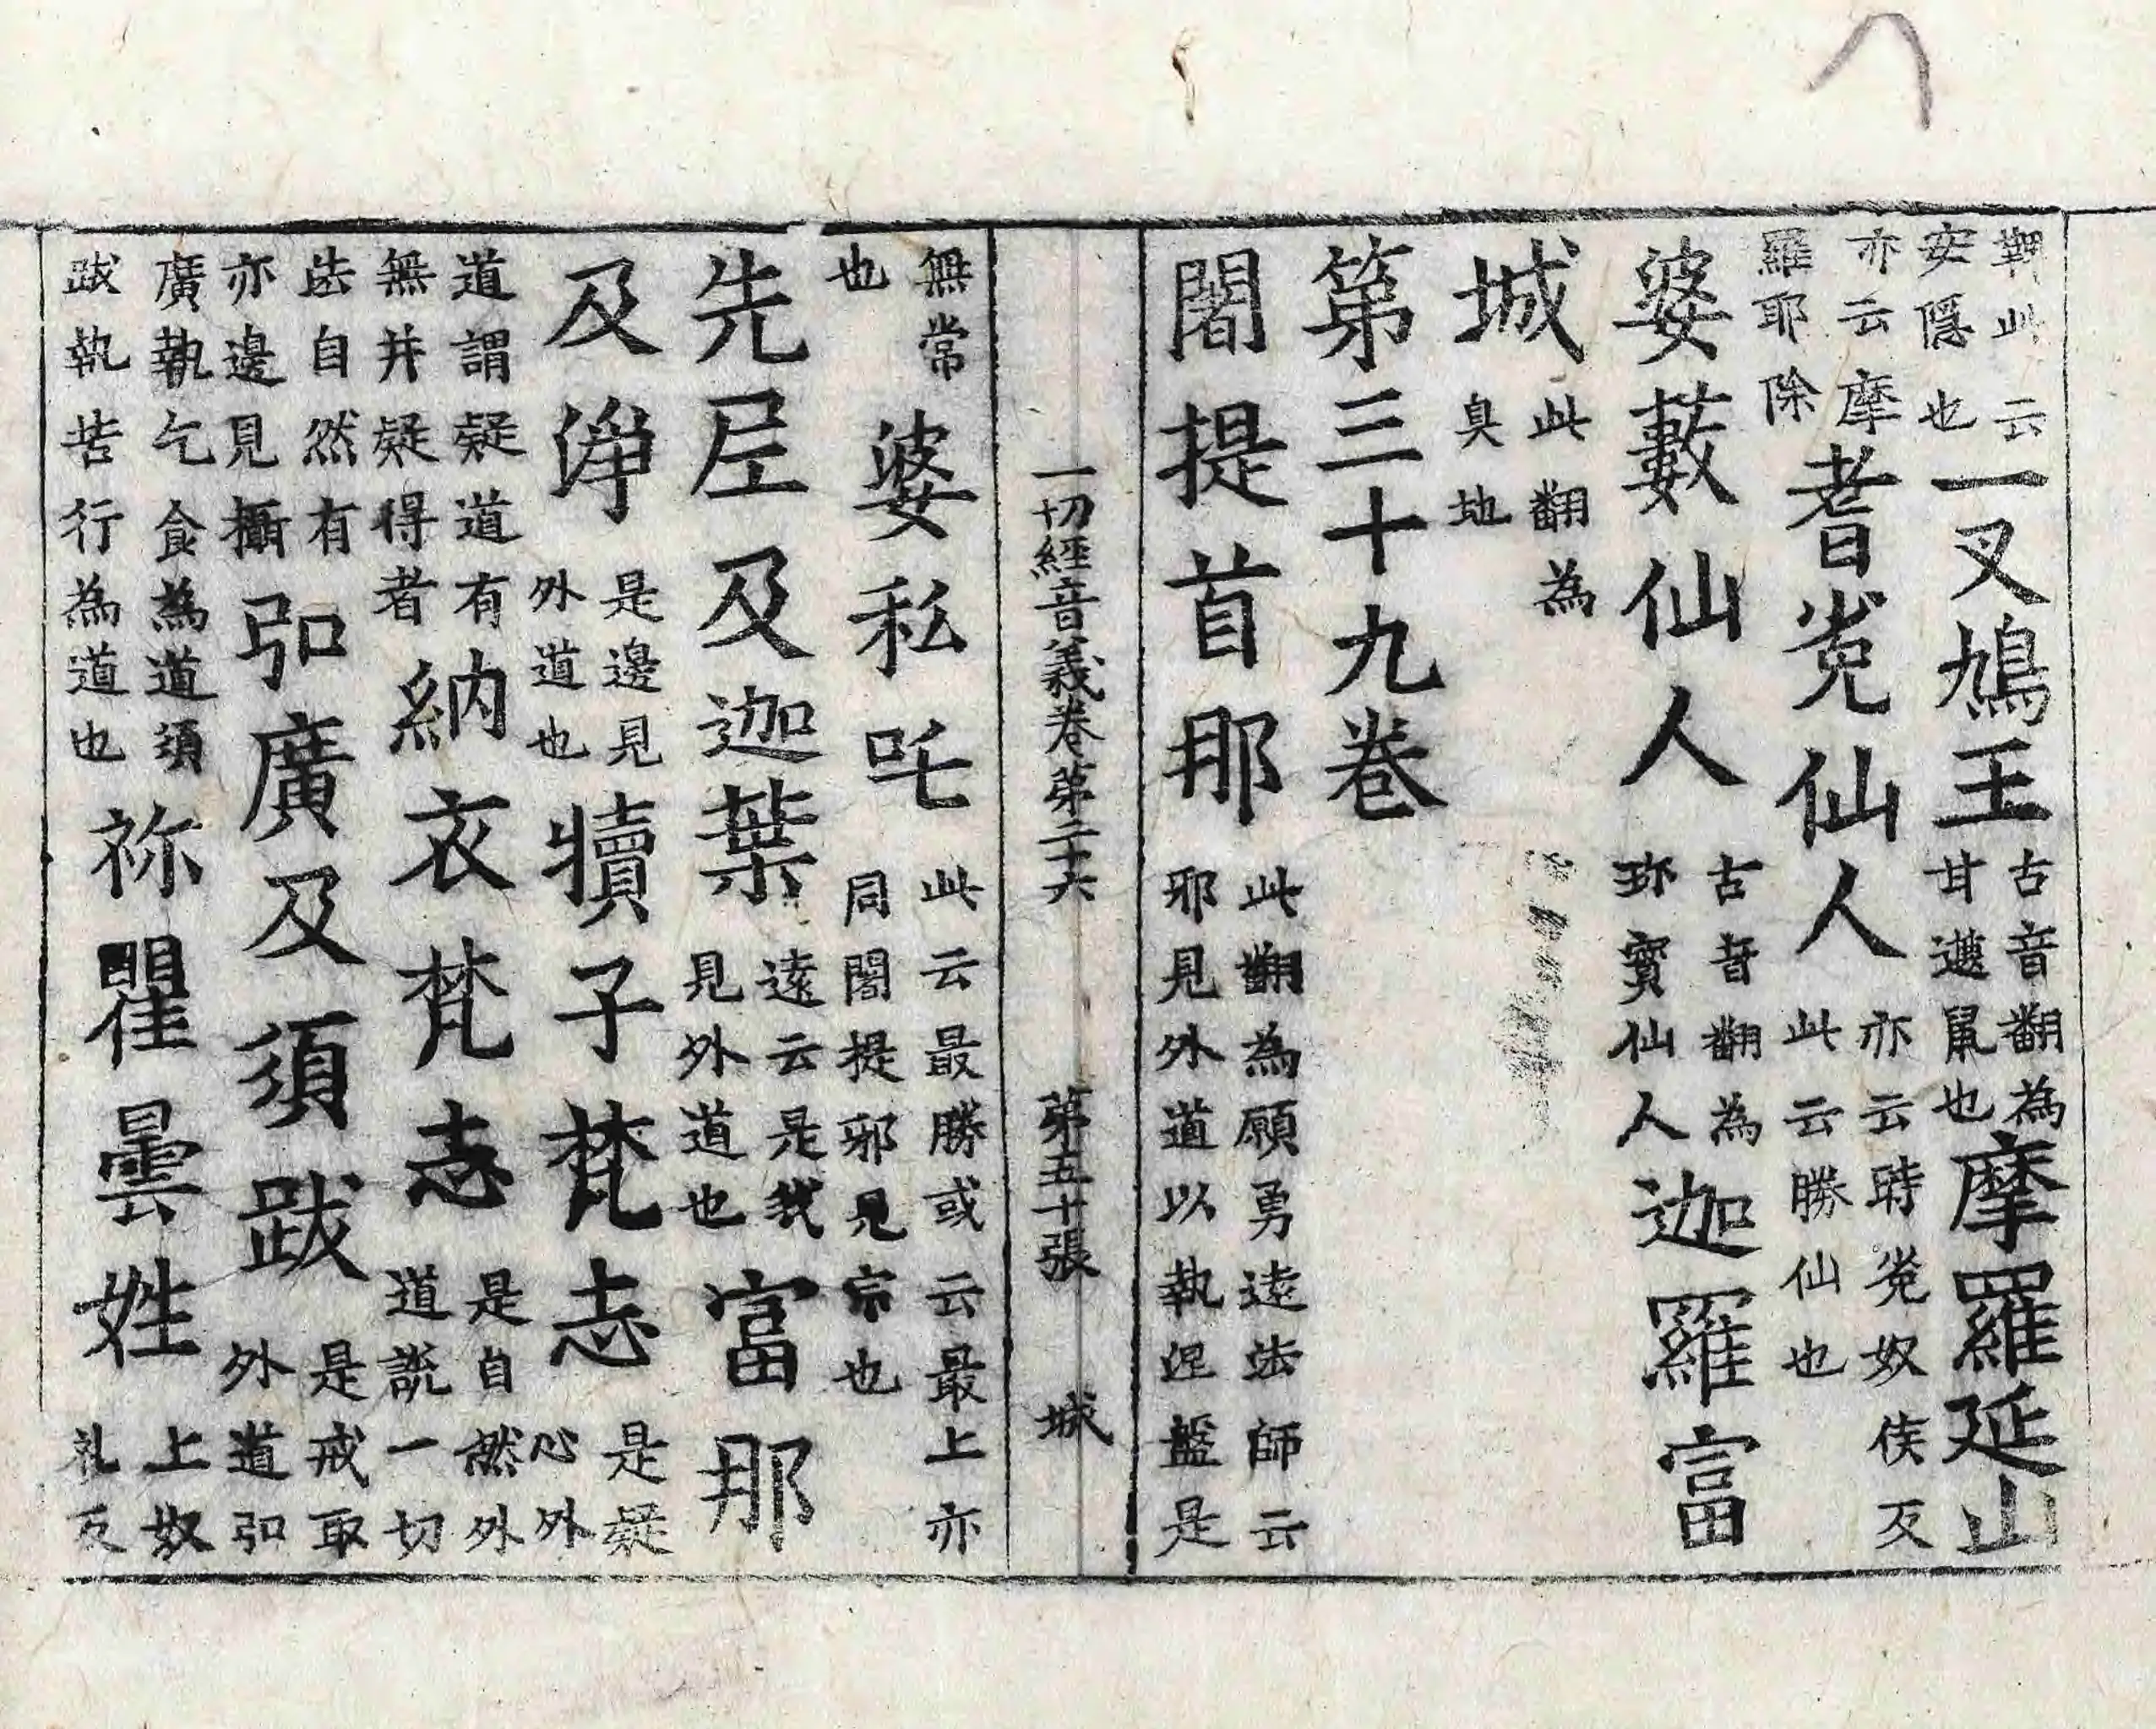 鞞此云安隱也一叉鳩王古音翻為甘遮鼠也摩羅延山
亦云摩羅耶除耆㝹仙人亦云時㝹奴侯反此云勝仙也
婆藪仙人古音翻為珎寶仙人迦羅富
城此翻為臭地
第三十九卷
闍提首那此翻為願勇遠法師云邪見外道以執涅盤是
一切經音義卷第二十六 第五十張 城
無常也婆私吒此云最勝或云最上亦同闍提邪見宗也
先尼及迦葉遠云是我見外道也富那
及淨是邊見外道也犢子梵志是疑心外
道謂疑道有無并疑得者納衣梵志是自然外道說一切
法自然有亦邊見攝弘廣及須跋是戒取外道弘
廣執乞食為道須跋執苦行為道也祢瞿曇姓上奴礼反